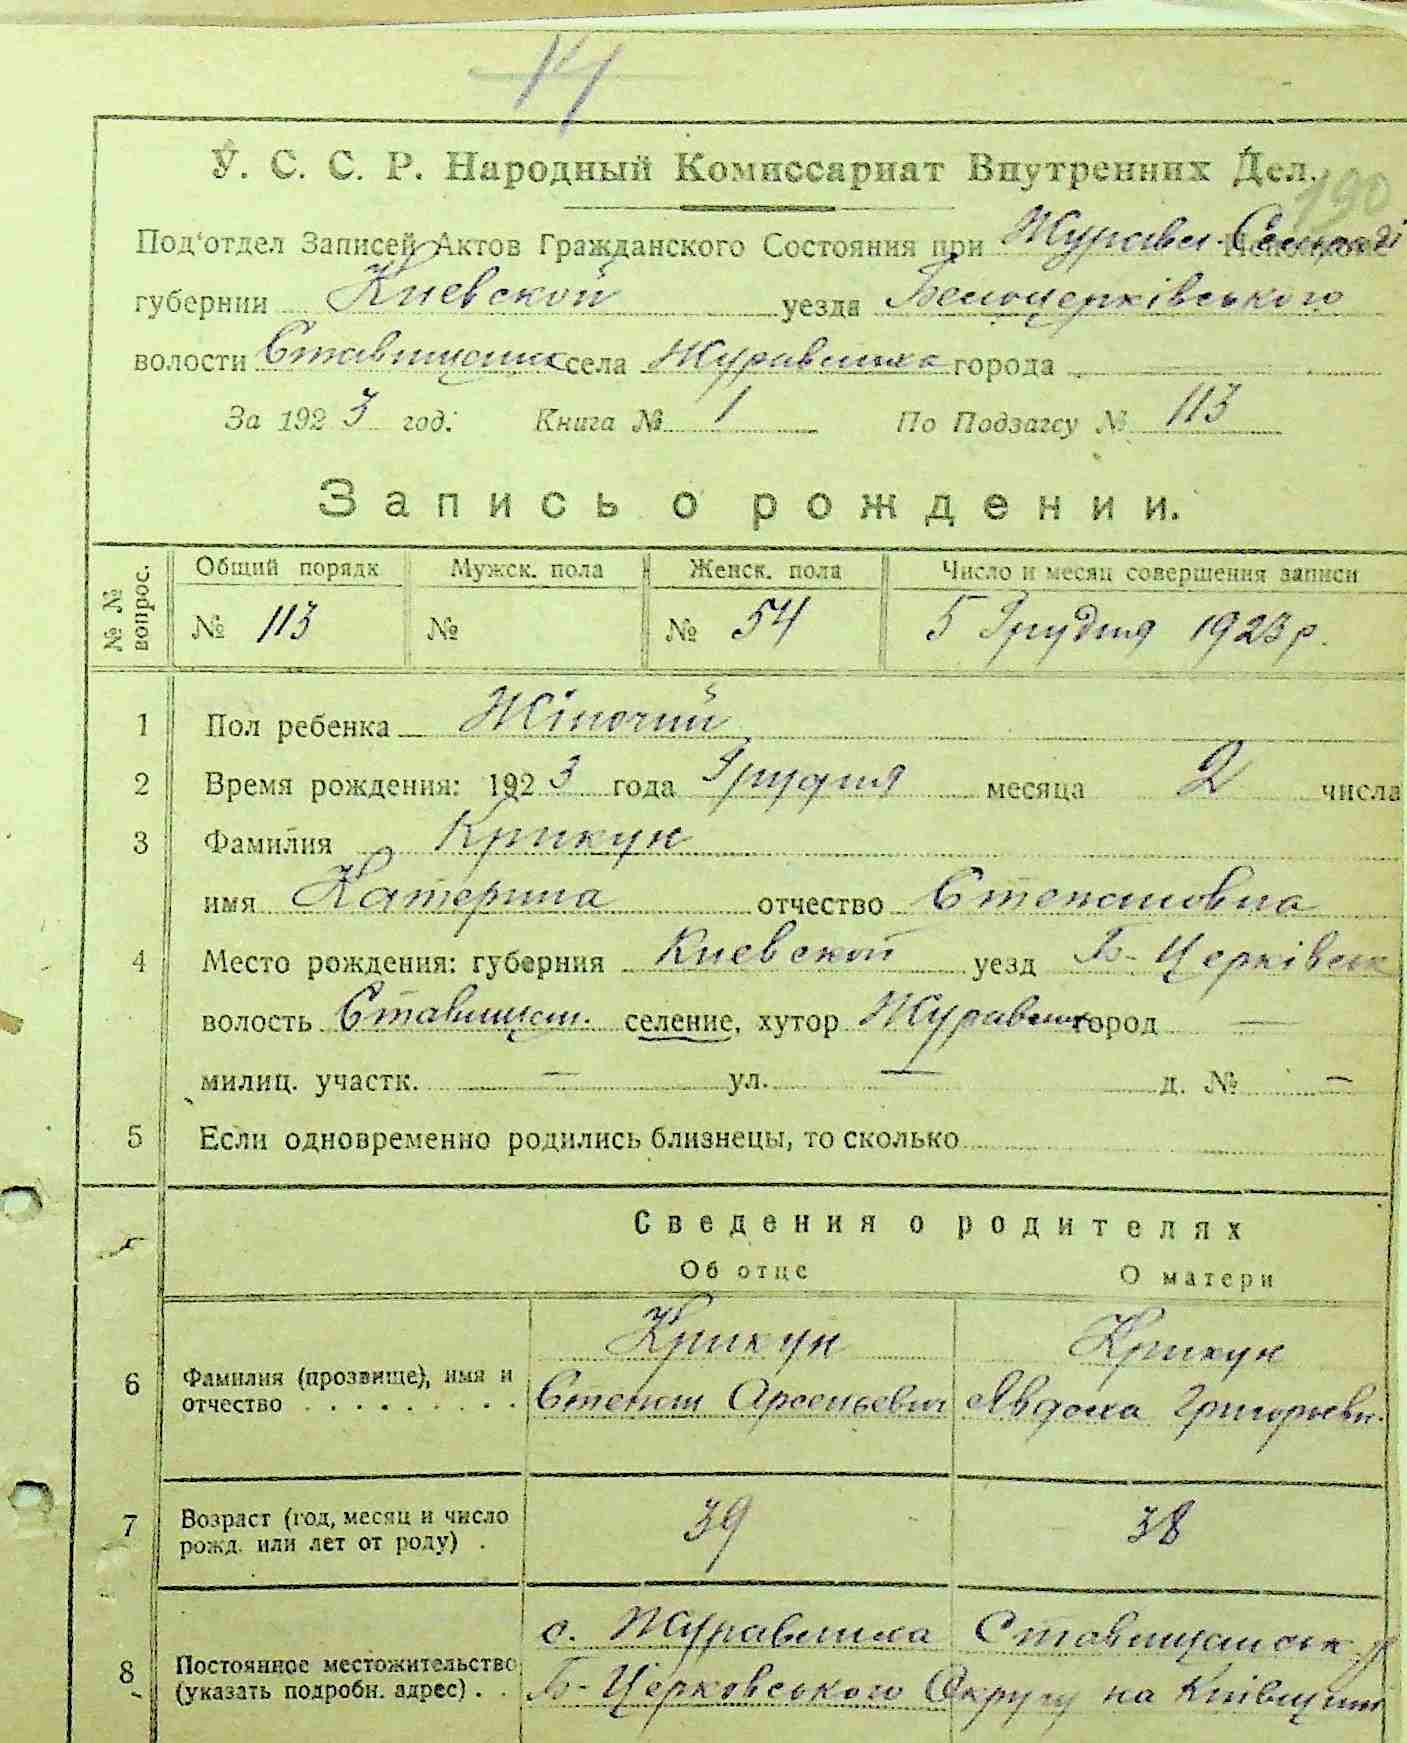 14
190
У. С. С. Р. Народный Комиссариат Внутренних Дел.
Под'отдел Записей Актов Гражданского Состояния при Журавл. Сельраді
губернии Киевской уезда Белоцерківського
волости Ставищанск села Журавлиха города —
За 1923 год: Книга № 1 По Подзагсу № 113
Запись о рождении.
№ № вопрос. Общий порядк Мужск. пола Женск. пола Число и месяц совершения записи
№ 113 № № 54 5 Грудня 1923 р.
1 Пол ребенка Жіночий
2 Время рождения: 1923 года Грудня месяца 2 числа
3 Фамилия Крикун
имя Катерина отчество Степановна
4 Место рождения: губерния Киевской уезд Б-Церківськ
волость Ставищан. селение, хутор Журавлиха город —
милиц. участк. — ул. — д. № —
5 Если одновременно родились близнецы, то сколько
Сведения о родителях
Об отце О матери
Крикун Крикун
6 Фамилия (прозвище), имя и отчество Степан Арсеньевич Явдоха Григорьевн.
7 Возраст (год, месяц и число рожд. или лет от роду) 39 38
с. Журавлиха Ставищанськ. р
8 Постоянное местожительство (указать подробн. адрес) Б-Церковського Округу на Київщині